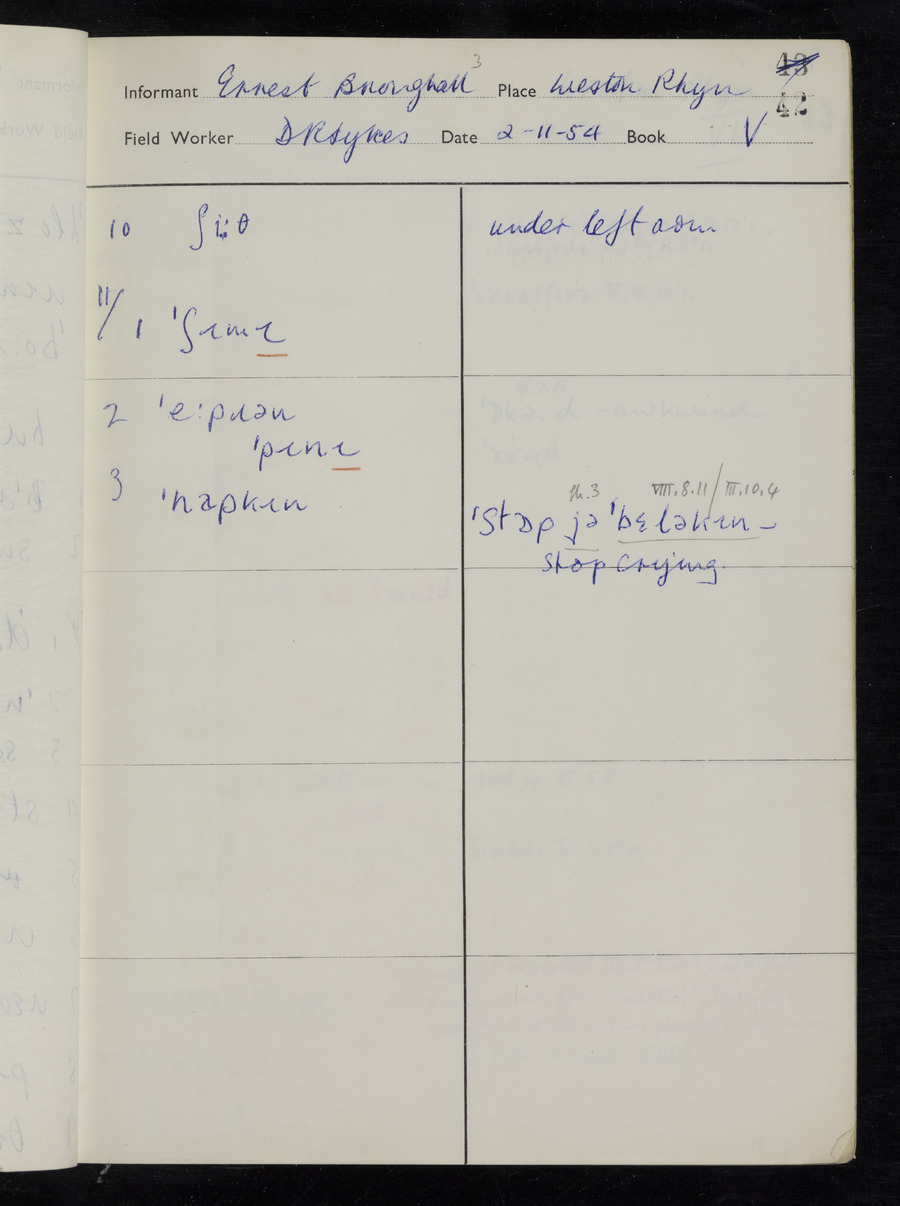 3 43
Informant Ernest Broughall Place Weston Rhyn
42
Field Worker DRSykes Date 2-11-54 Book V
10 ʃïːθ under left arm
11/
1 ˈʃɪmɪ
2 ˈeːpɹən
ˈpɪnɪ
3 ˈnapkɪn
ph.3 VIII.8.11/III.10.4
ˈstɒp jə ˈbɛləkɪn –
stop crying.